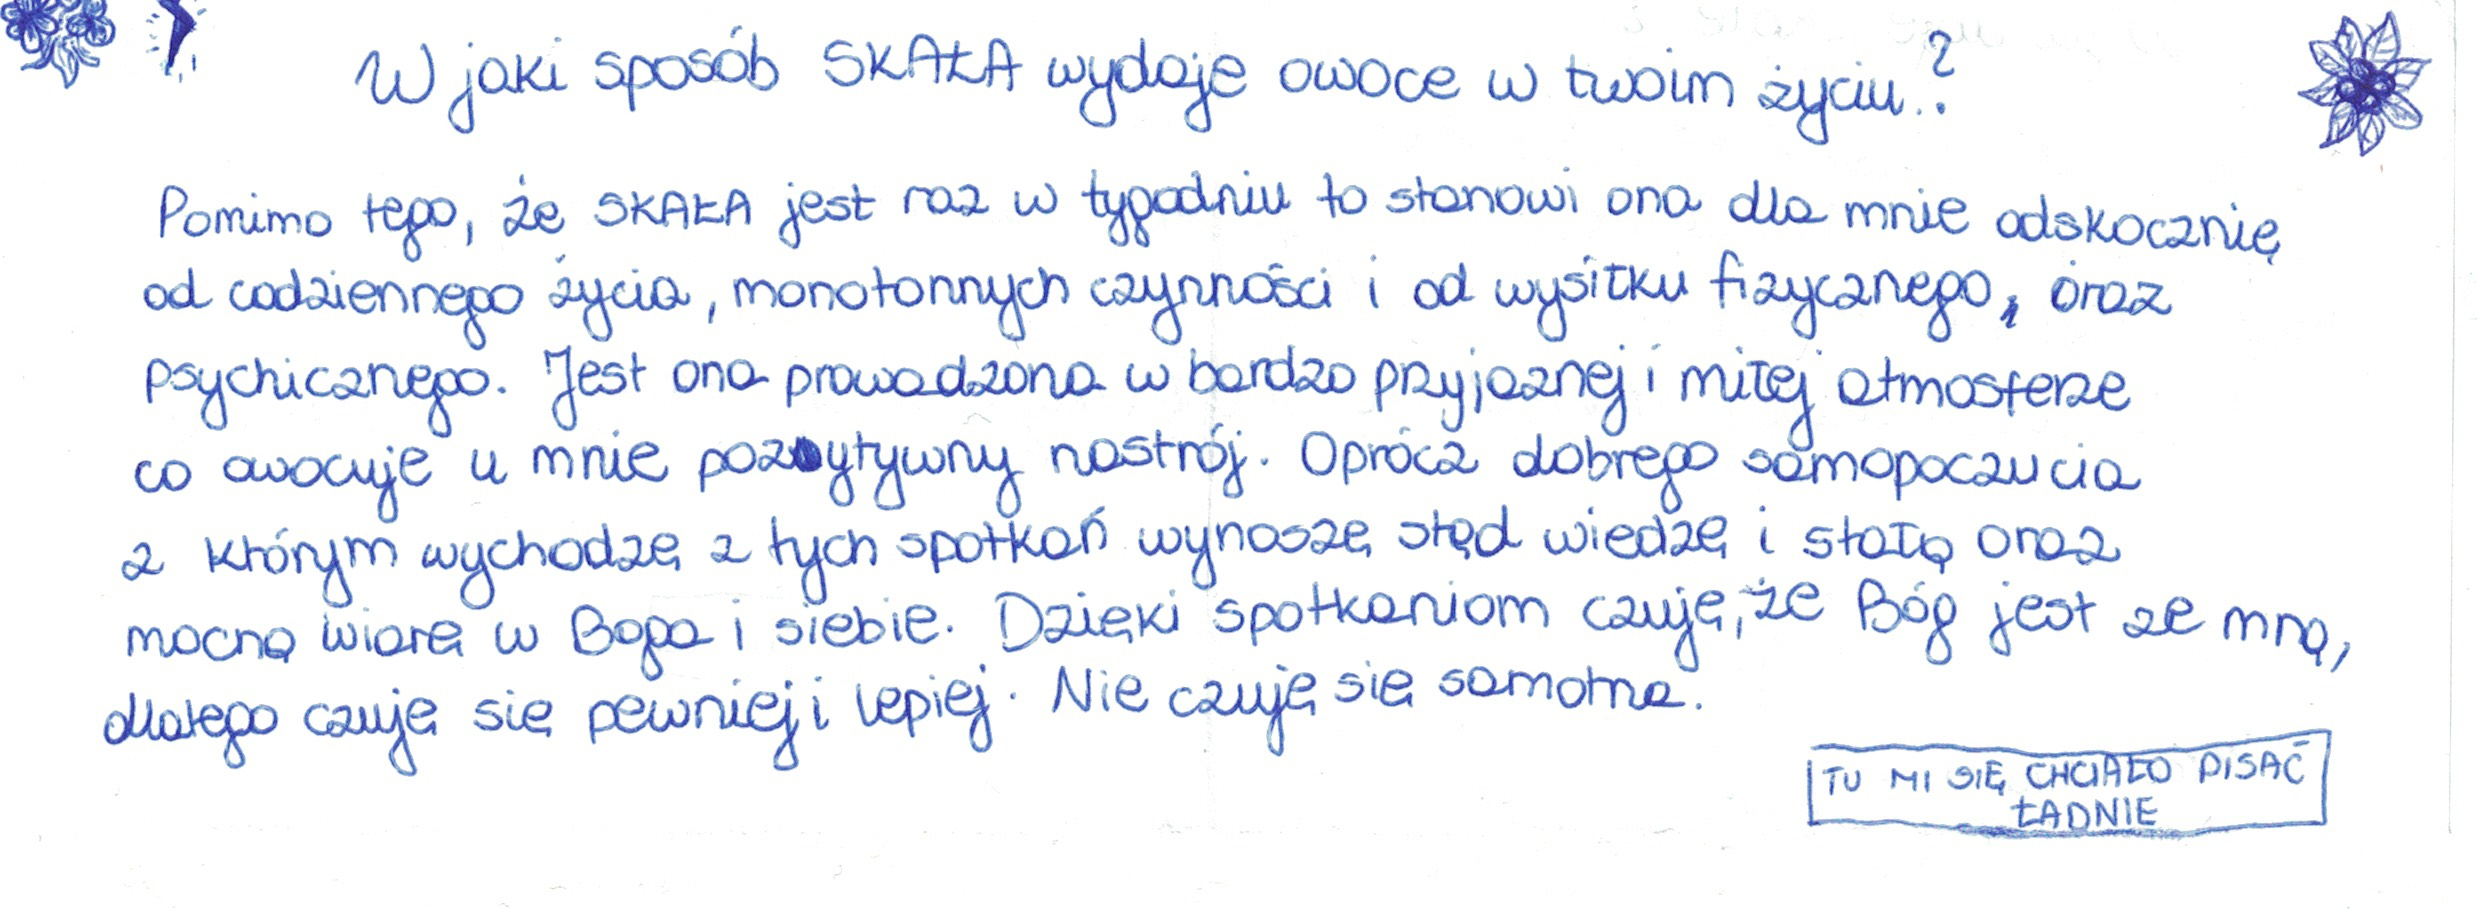 W jaki sposób SKAŁA wydaje owoce w twoim życiu..?
Pomimo tego, że SKAŁA jest raz w tygodniu to stanowi ona dla mnie odskocznię
od codziennego życia, monotonnych czynności i od wysiłku fizycznego, oraz
psychicznego. Jest ona prowadzona w bardzo przyjaznej i miłej atmosferze
co owocuje u mnie pozytywny nastrój. Oprócz dobrego samopoczucia
z którym wychodzę z tych spotkań wynoszę stąd wiedzę i stałą oraz
mocną wiarę w Boga i siebie. Dzięki spotkaniom czuję, że Bóg jest ze mną,
dlatego czuję się pewniej i lepiej. Nie czuję się samotna.
TU MI SIĘ CHCIAŁO PISAĆ
ŁADNIE